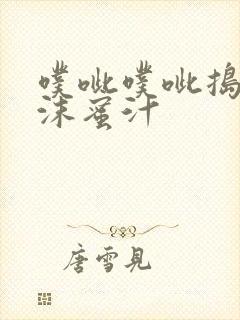 噗呲噗呲搗
沫蜜汁
唐雪見